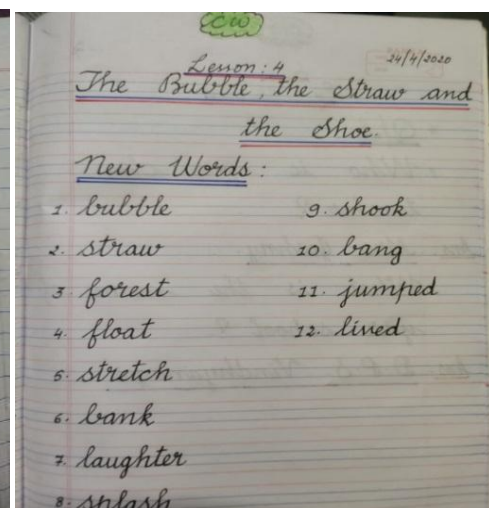 CW
24/4/2020
Lesson : 4
The Bubble, the Straw and
the Shoe.
New Words :
1. bubble
2. straw
3. forest
4. float
5. stretch
6. bank
7. laughter
8. splash
9. shook
10. bang
11. jumped
12. lived